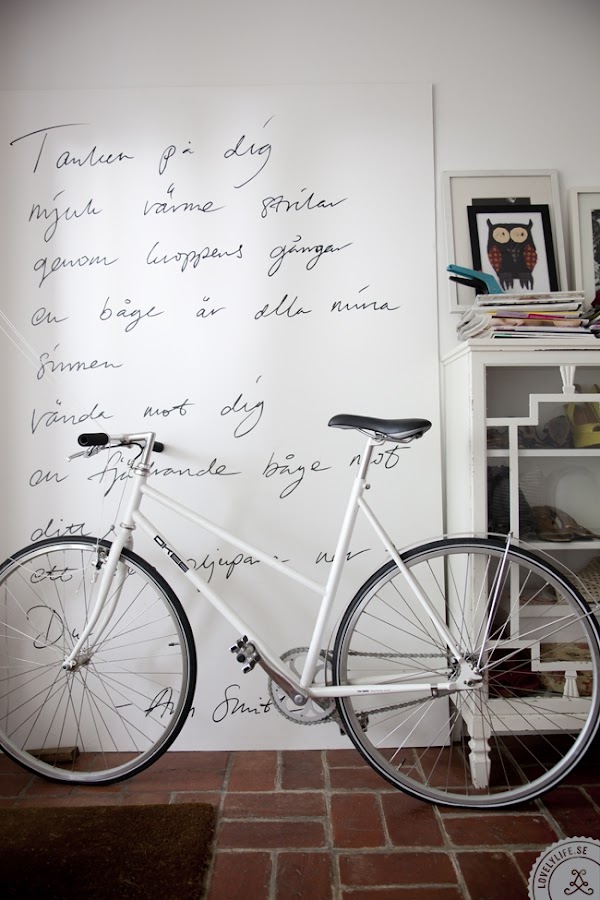 Tanken på dig
mjuk värme strilar
genom kroppens gångar
en båge är alla mina
sinnen
vända mot dig
en fjädrande båge mot
ditt
ett
Du
- Smit -
LOVELYLIFE.SE